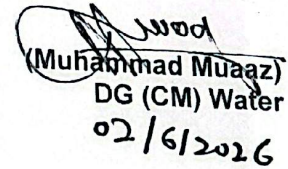 (Muhammad Muaaz)
DG (CM) Water
02/6/2026